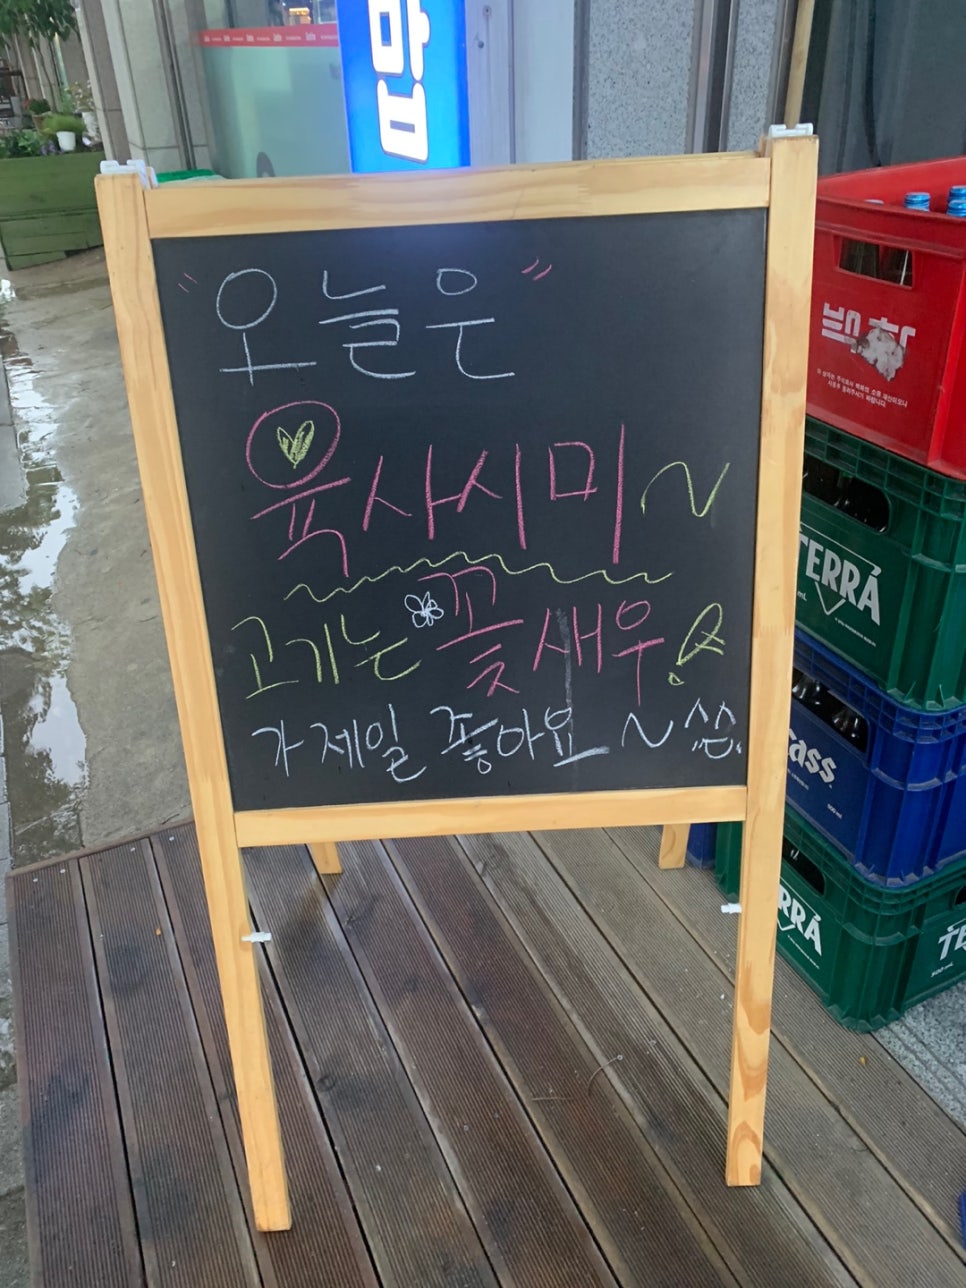 "오늘은"
육사시미~
고기는 꽃새우!
가 제일 좋아요~
맘
TERRA
Cass
TERRA